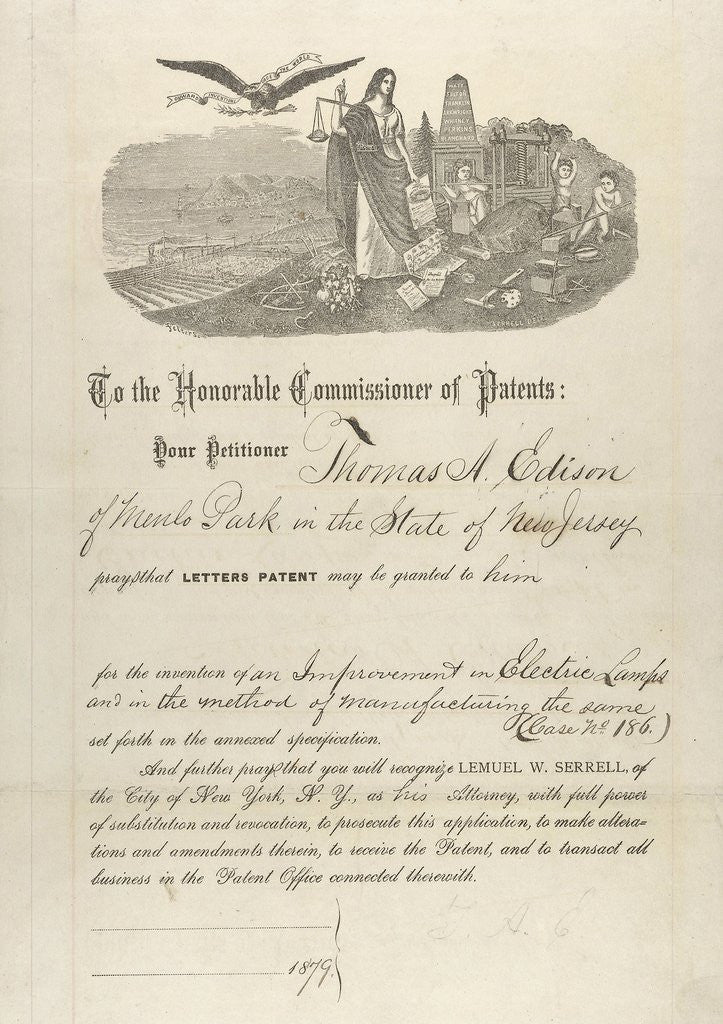 ONWARD INVENTIONS OF THE WORLD
WATT
FULTON
FRANKLIN
ARKWRIGHT
WHITNEY
PERKINS
BLANCHARD
To the Honorable Commissioner of Patents:
Your Petitioner Thomas A. Edison
of Menlo Park in the State of New Jersey
prays that LETTERS PATENT may be granted to him
for the invention of an Improvement in Electric Lamps
and in the method of manufacturing the same
(Case No 186.)
set forth in the annexed specification.
And further prays that you will recognize LEMUEL W. SERRELL, of
the City of New York, N. Y., as his Attorney, with full power
of substitution and revocation, to prosecute this application, to make altera=
tions and amendments therein, to receive the Patent, and to transact all
business in the Patent Office connected therewith.
T. A. E
1879.